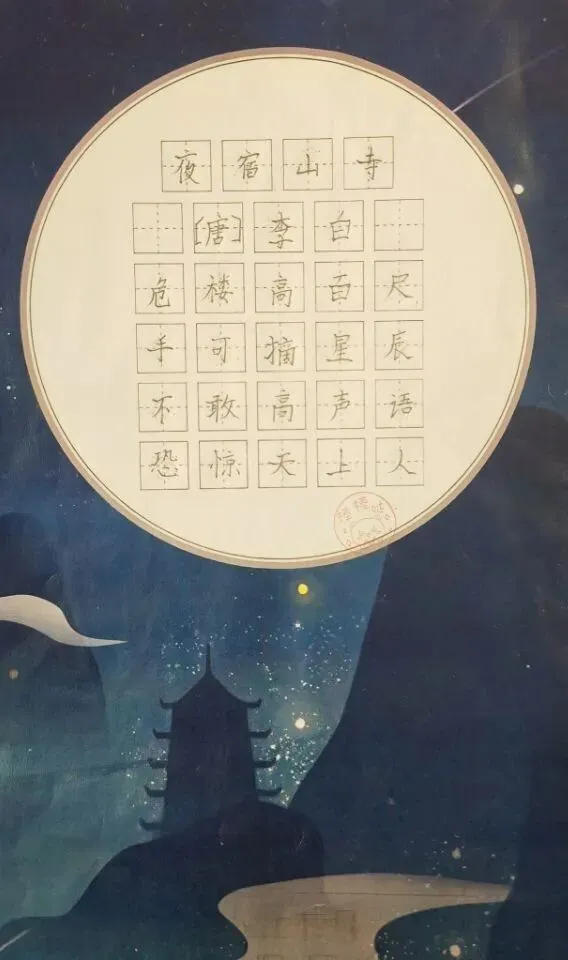 夜宿山寺
[唐]李白
危楼高百尺
手可摘星辰
不敢高声语
恐惊天上人